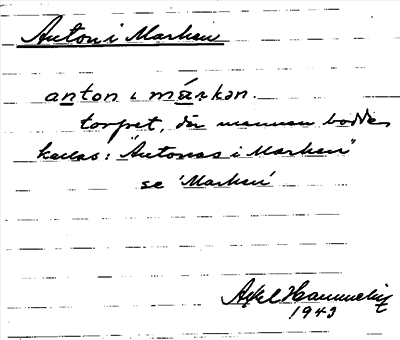 Anton i Marken
anton ı márkən.
torpet, där mannen bodde
kallas: "Antonas i Marken"
se 'Marken'
Axel
1943